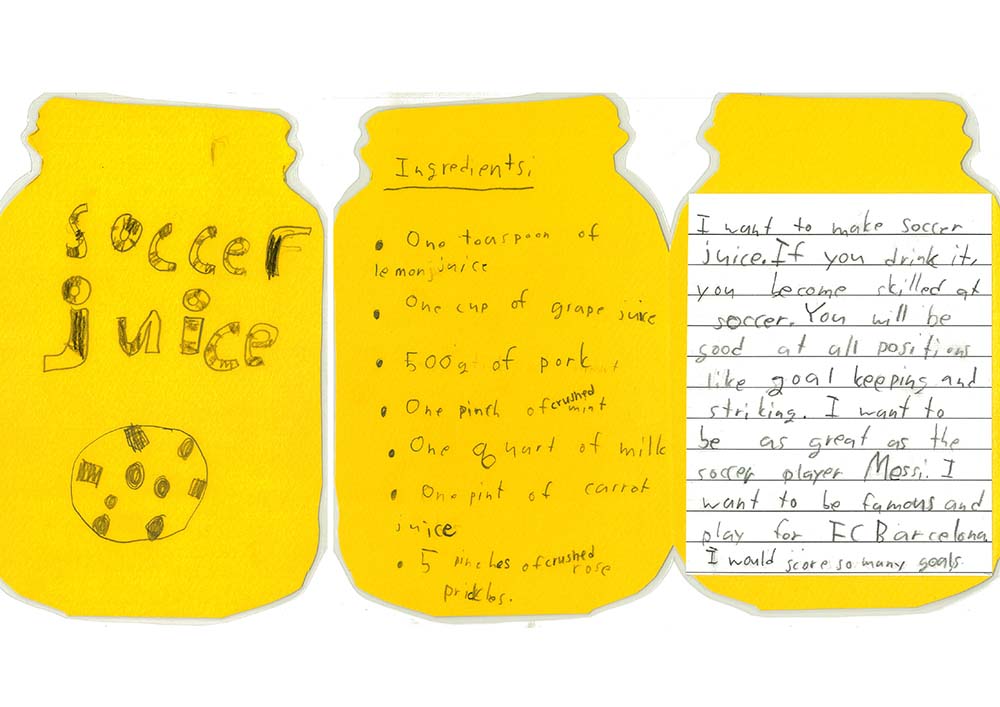 soccer
juice
Ingredients:
• One teaspoon of
lemon juice
• One cup of grape juice
• 500g of pork
• One pinch of crushed mint
• One quart of milk
• One pint of carrot
juice
• 5 pinches of crushed rose
prickles.
I want to make soccer
juice. If you drink it,
you become skilled at
soccer. You will be
good at all positions
like goal keeping and
striking. I want to
be as great as the
soccer player Messi. I
want to be famous and
play for FC Barcelona
I would score so many goals.